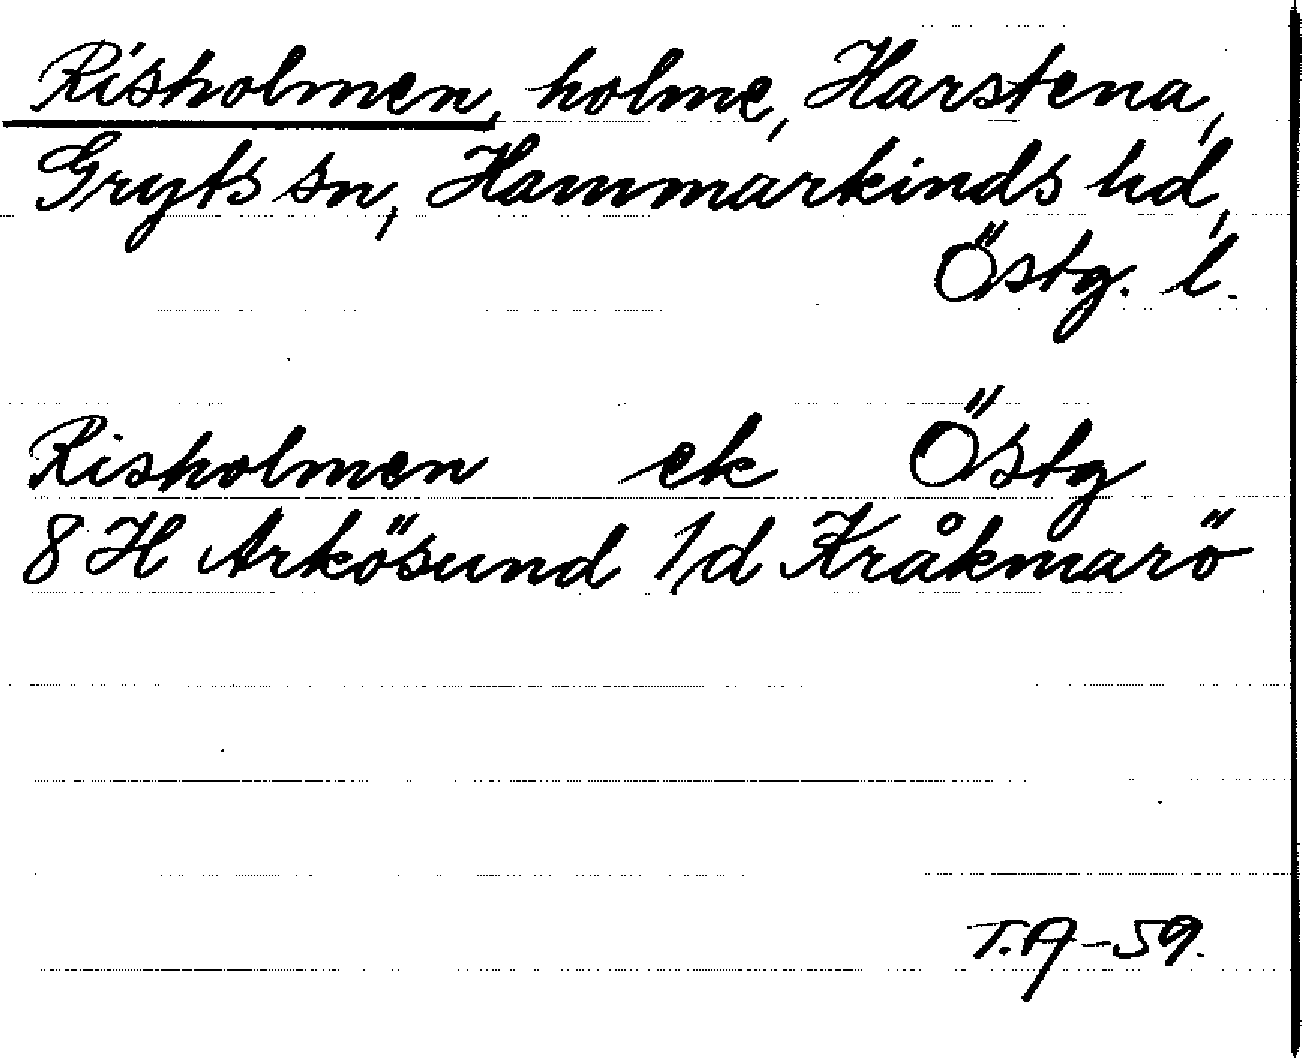 Risholmen, holme, Harstena,
Gryts sn, Hammarkinds hd,
Östg. l.
Risholmen ek Östg
8 H Arkösund 1/d Kråkmarö
T.A-59.